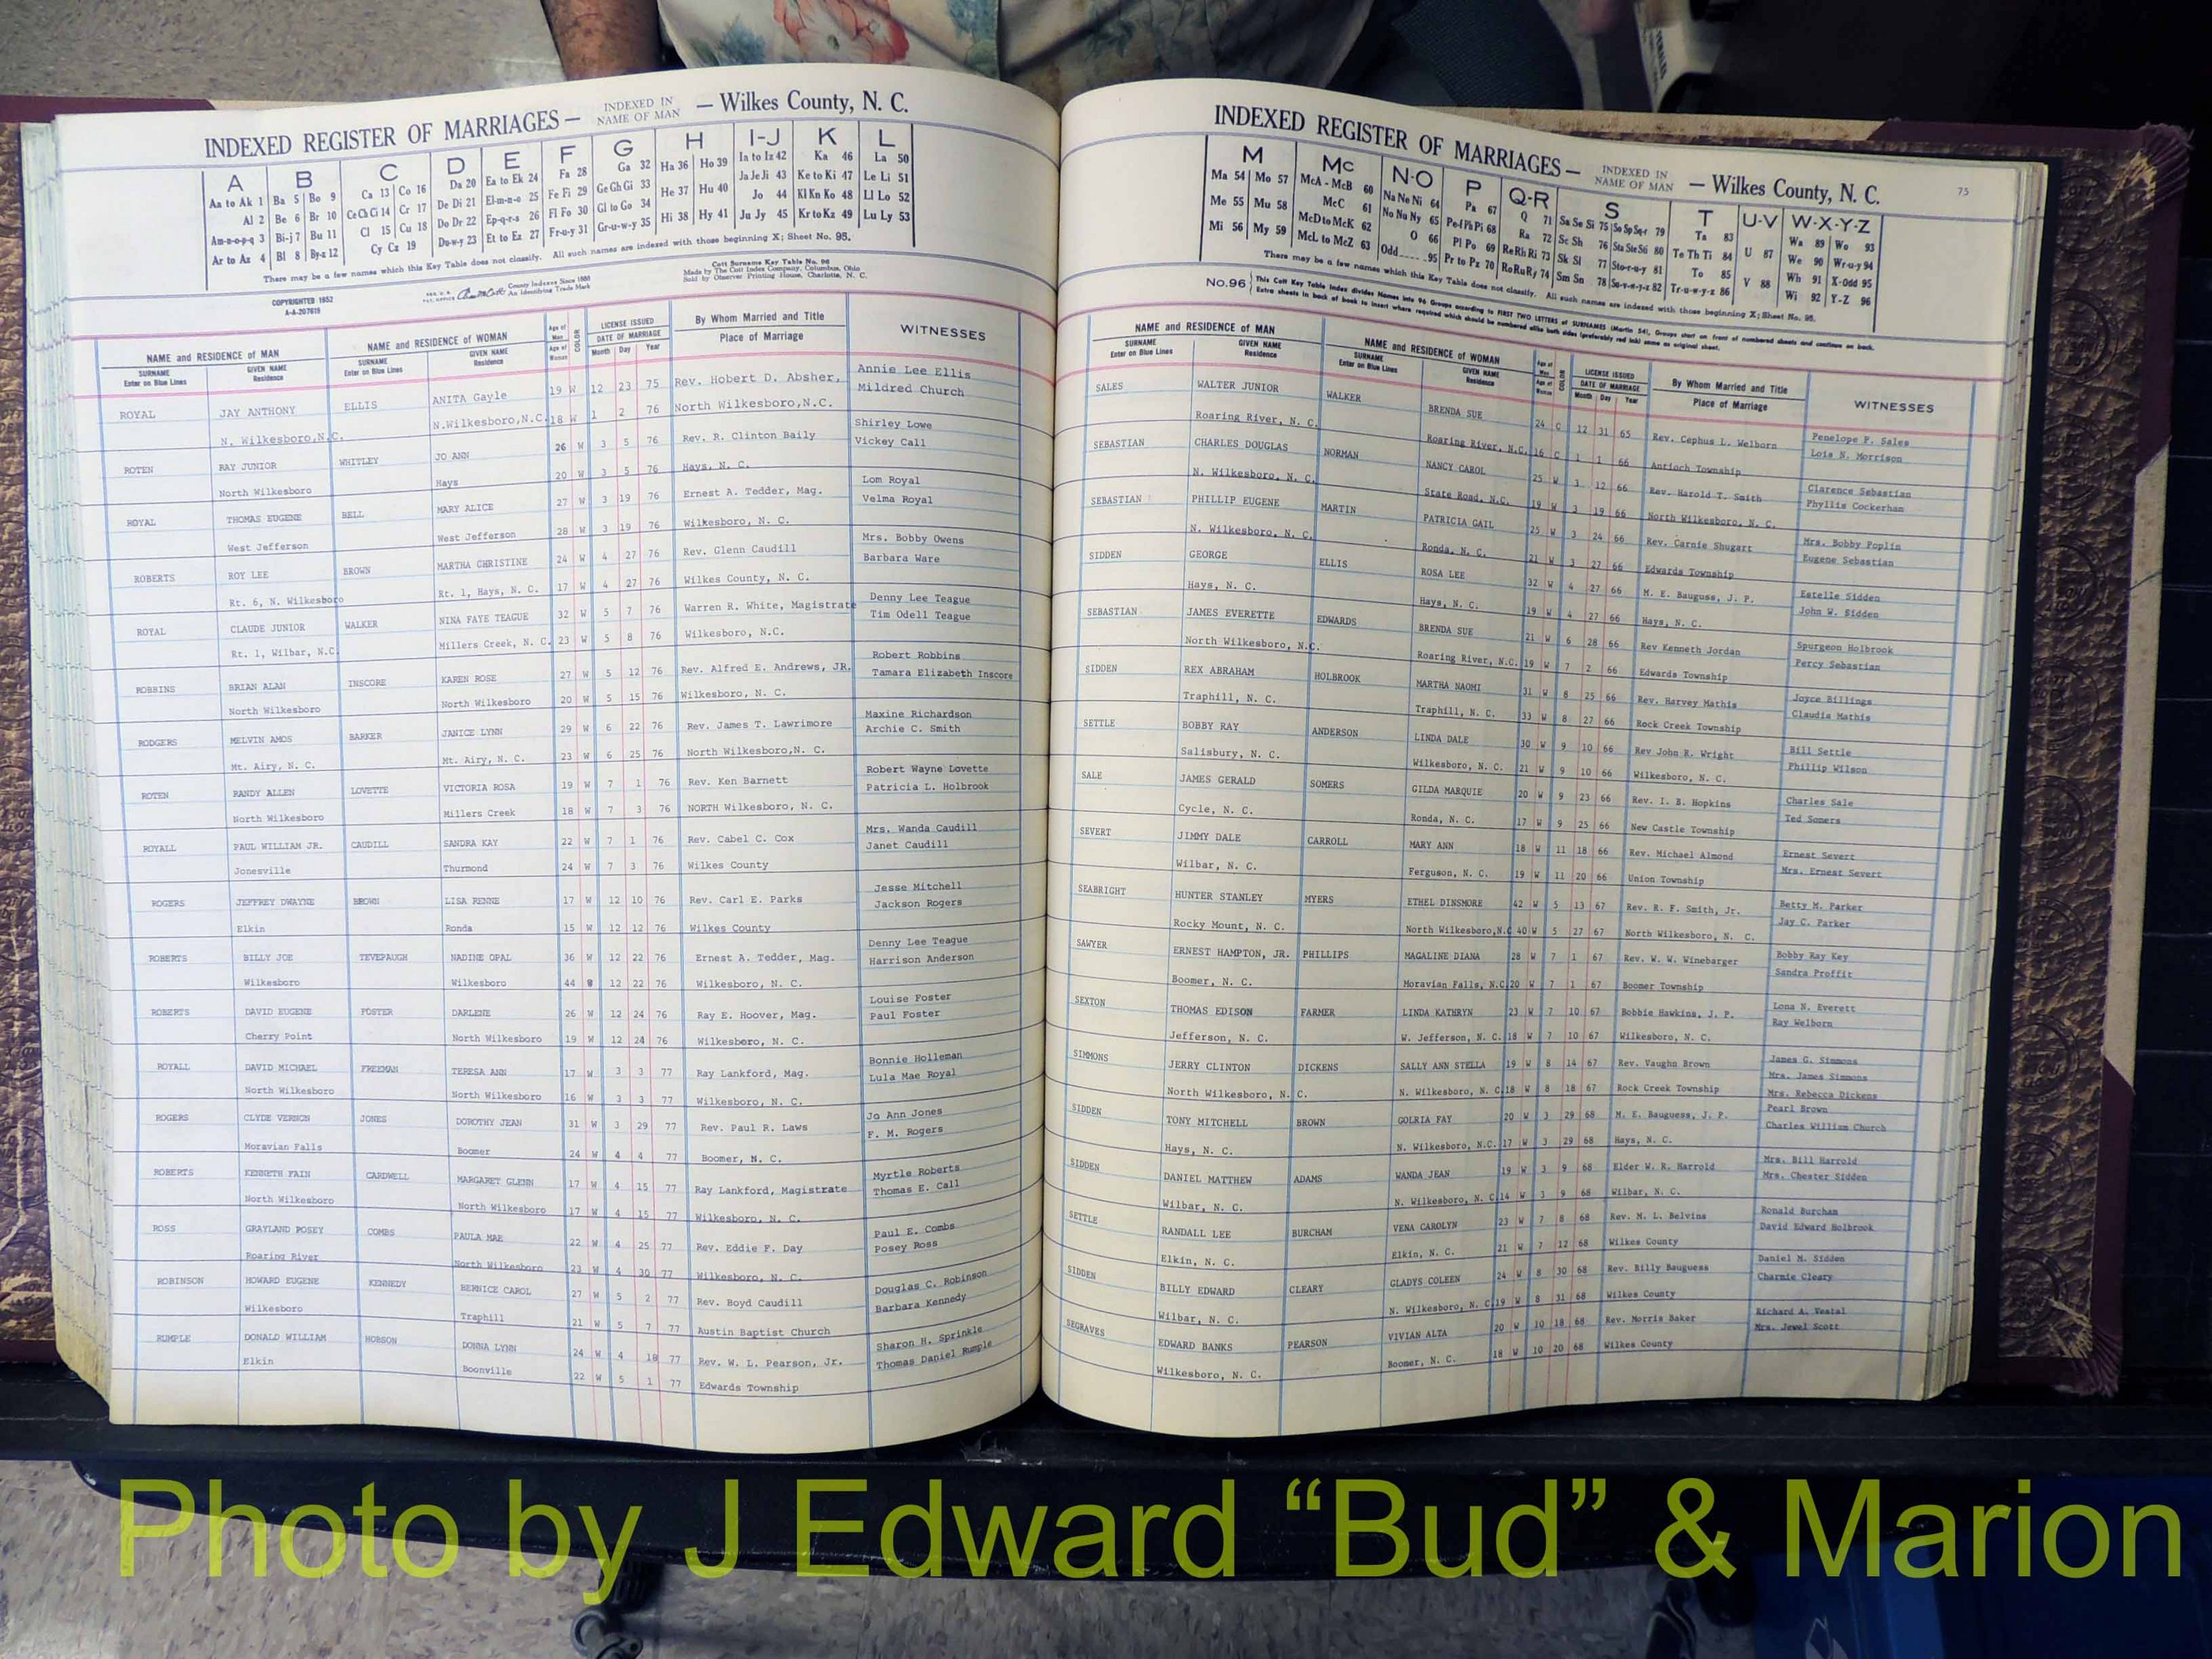 INDEXED REGISTER OF MARRIAGES — INDEXED IN NAME OF MAN — Wilkes County, N. C.
A B C D E F G H I-J K L
Aa to Ak 1 Ba 5 Bo 9 Ca 13 Co 16 Da 20 Ea to Ek 24 Fa 28 Ga 32 Ha 36 Ho 39 Ia to Iz 42 Ka 46 La 50
Al 2 Be 6 Br 10 Ce Ch Ci 14 Cr 17 De Di 21 El-m-n-o 25 Fe Fi 29 Ge Gh Gi 33 He 37 Hu 40 Ja Je Ji 43 Ke to Ki 47 Le Li 51
Am-n-o-p-q 3 Bi-j 7 Bu 11 Cl 15 Cu 18 Do Dr 22 Ep-q-r-s 26 Fl Fo 30 Gl to Go 34 Hi 38 Hy 41 Jo 44 Kl Kn Ko 48 Ll Lo 52
Ar to Az 4 Bl 8 By-z 12 Cy Cz 19 Du-w-y 23 Et to Ez 27 Fr-u-y 31 Gr-u-w-y 35 Ju Jy 45 Kr to Kz 49 Lu Ly 53
There may be a few names which this Key Table does not classify. All such names are indexed with those beginning X; Sheet No. 95.
COPYRIGHTED 1952
A-A-207619
County Indexes Since 1888
An Identifying Trade Mark
Cott Surname Key Table No. 96
Made by The Cott Index Company, Columbus, Ohio
Sold by Observer Printing House, Charlotte, N. C.
NAME and RESIDENCE OF MAN NAME and RESIDENCE OF WOMAN Age of Man Age of Woman COLOR LICENSE ISSUED By Whom Married and Title WITNESSES
SURNAME Enter on Blue Lines GIVEN NAME Residence SURNAME Enter on Blue Lines GIVEN NAME Residence DATE OF MARRIAGE Month Day Year Place of Marriage
ROYAL JAY ANTHONY ELLIS ANITA Gayle 19 W 12 23 75 Rev. Hobert D. Absher, Annie Lee Ellis
N. Wilkesboro,N.C. N.Wilkesboro,N.C. 18 W 1 2 76 North Wilkesboro,N.C. Mildred Church
ROTEN RAY JUNIOR WHITLEY JO ANN 26 W 3 5 76 Rev. R. Clinton Baily Shirley Lowe
North Wilkesboro Hays 20 W 3 5 76 Hays, N. C. Vickey Call
ROYAL THOMAS EUGENE BELL MARY ALICE 27 W 3 19 76 Ernest A. Tedder, Mag. Lom Royal
West Jefferson West Jefferson 28 W 3 19 76 Wilkesboro, N. C. Velma Royal
ROBERTS ROY LEE BROWN MARTHA CHRISTINE 24 W 4 27 76 Rev. Glenn Caudill Mrs. Bobby Owens
Rt. 6, N. Wilkesboro Rt. 1, Hays, N. C. 17 W 4 27 76 Wilkes County, N. C. Barbara Ware
ROYAL CLAUDE JUNIOR WALKER NINA FAYE TEAGUE 32 W 5 7 76 Warren R. White, Magistrate Denny Lee Teague
Rt. 1, Wilbar, N.C. Millers Creek, N. C. 23 W 5 8 76 Wilkesboro, N.C. Tim Odell Teague
ROBBINS BRIAN ALAN INSCORE KAREN ROSE 27 W 5 12 76 Rev. Alfred E. Andrews, JR. Robert Robbins
North Wilkesboro North Wilkesboro 20 W 5 15 76 Wilkesboro, N. C. Tamara Elizabeth Inscore
RODGERS MELVIN AMOS BARKER JANICE LYNN 29 W 6 22 76 Rev. James T. Lawrimore Maxine Richardson
Mt. Airy, N. C. Mt. Airy, N. C. 23 W 6 25 76 North Wilkesboro,N. C. Archie C. Smith
ROTEN RANDY ALLEN LOVETTE VICTORIA ROSA 19 W 7 1 76 Rev. Ken Barnett Robert Wayne Lovette
North Wilkesboro Millers Creek 18 W 7 3 76 NORTH Wilkesboro, N. C. Patricia L. Holbrook
ROYALL PAUL WILLIAM JR. CAUDILL SANDRA KAY 22 W 7 1 76 Rev. Cabel C. Cox Mrs. Wanda Caudill
Jonesville Thurmond 24 W 7 3 76 Wilkes County Janet Caudill
ROGERS JEFFREY DWAYNE BROWN LISA RENNE 17 W 12 10 76 Rev. Carl E. Parks Jesse Mitchell
Elkin Ronda 15 W 12 12 76 Wilkes County Jackson Rogers
ROBERTS BILLY JOE TEVEPAUGH NADINE OPAL 36 W 12 22 76 Ernest A. Tedder, Mag. Denny Lee Teague
Wilkesboro Wilkesboro 44 12 22 76 Wilkesboro, N. C. Harrison Anderson
ROBERTS DAVID EUGENE FOSTER DARLENE 26 W 12 24 76 Ray E. Hoover, Mag. Louise Foster
Cherry Point North Wilkesboro 19 W 12 24 76 Wilkesboro, N. C. Paul Foster
ROYALL DAVID MICHAEL FREEMAN TERESA ANN 17 W 3 3 77 Ray Lankford, Mag. Bonnie Holleman
North Wilkesboro North Wilkesboro 16 W 3 3 77 Wilkesboro, N. C. Lula Mae Royal
ROGERS CLYDE VERNON JONES DOROTHY JEAN 31 W 3 29 77 Rev. Paul R. Laws Jo Ann Jones
Moravian Falls Boomer 24 W 4 4 77 Boomer, N. C. F. M. Rogers
ROBERTS KENNETH FAIN CARDWELL MARGARET GLENN 17 W 4 15 77 Ray Lankford, Magistrate Myrtle Roberts
North Wilkesboro North Wilkesboro 17 W 4 15 77 Wilkesboro, N. C. Thomas E. Call
ROSS GRAYLAND POSEY COMBS PAULA MAE 22 W 4 25 77 Rev. Eddie F. Day Paul E. Combs
Roaring River North Wilkesboro 23 W 4 30 77 Wilkesboro, N. C. Posey Ross
ROBINSON HOWARD EUGENE KENNEDY BERNICE CAROL 27 W 5 2 77 Rev. Boyd Caudill Douglas C. Robinson
Wilkesboro Traphill 21 W 5 7 77 Austin Baptist Church Barbara Kennedy
RUMPLE DONALD WILLIAM HOBSON DONNA LYNN 24 W 4 18 77 Rev. W. L. Pearson, Jr. Sharon H. Sprinkle
Elkin Boonville 22 W 5 1 77 Edwards Township Thomas Daniel Rumple
INDEXED REGISTER OF MARRIAGES — INDEXED IN NAME OF MAN — Wilkes County, N. C. 75
M Mc N-O P Q-R S T U-V W-X-Y-Z
Ma 54 Mo 57 McA - McB 60 Na Ne Ni 64 Pa 67 Q 71 Sa Se Si 75 So Sp Sq-r 79 Ta 83 U 87 Wa 89 Wo 93
Me 55 Mu 58 McC 61 No Nu Ny 65 Pe-f Ph Pi 68 Ra 72 Sc Sh 76 Sta Ste Sti 80 Te Th Ti 84 V 88 We 90 Wr-u-y 94
Mi 56 My 59 McD to McK 62 O 66 Pl Po 69 Re Rh Ri 73 Sk Sl 77 Sto-r-u-y 81 To 85 Wh 91 X-Odd 95
McL to McZ 63 Odd 95 Pr to Pz 70 Ro Ru Ry 74 Sm Sn 78 Su-v-w-y-z 82 Tr-u-w-y-z 86 Wi 92 Y-Z 96
There may be a few names which this Key Table does not classify. All such names are indexed with those beginning X; Sheet No. 95.
No.96 This Cott Key Table Index divides Names into 96 Groups according to FIRST TWO LETTERS of SURNAMES (Martin 54). Groups start on front of numbered sheets and continue on back.
Extra sheets in back of book to insert where required which should be numbered alike both sides (preferably red ink) same as original sheet.
NAME and RESIDENCE OF MAN NAME and RESIDENCE OF WOMAN Age of Man Age of Woman COLOR LICENSE ISSUED By Whom Married and Title WITNESSES
SURNAME Enter on Blue Lines GIVEN NAME Residence SURNAME Enter on Blue Lines GIVEN NAME Residence DATE OF MARRIAGE Month Day Year Place of Marriage
SALES WALTER JUNIOR WALKER BRENDA SUE 24 C 12 31 65 Rev. Cephus L. Welborn Penelope P. Sales
Roaring River, N. C. Roaring River, N.C. 16 C 1 1 66 Antioch Township Lois N. Morrison
SEBASTIAN CHARLES DOUGLAS NORMAN NANCY CAROL 25 W 3 12 66 Rev. Harold T. Smith Clarence Sebastian
N. Wilkesboro, N. C. State Road, N.C. 19 W 3 19 66 North Wilkesboro, N. C. Phyllis Cockerham
SEBASTIAN PHILLIP EUGENE MARTIN PATRICIA GAIL 25 W 3 24 66 Rev. Carnie Shugart Mrs. Bobby Poplin
N. Wilkesboro, N. C. Ronda, N. C. 21 W 3 27 66 Edwards Township Eugene Sebastian
SIDDEN GEORGE ELLIS ROSA LEE 32 W 4 27 66 M. E. Bauguss, J. P. Estelle Sidden
Hays, N. C. Hays, N. C. 19 W 4 27 66 Hays, N. C. John W. Sidden
SEBASTIAN JAMES EVERETTE EDWARDS BRENDA SUE 21 W 6 28 66 Rev Kenneth Jordan Spurgeon Holbrook
North Wilkesboro, N.C. Roaring River, N.C. 19 W 7 2 66 Edwards Township Percy Sebastian
SIDDEN REX ABRAHAM HOLBROOK MARTHA NAOMI 31 W 8 25 66 Rev. Harvey Mathis Joyce Billings
Traphill, N. C. Traphill, N. C. 33 W 8 27 66 Rock Creek Township Claudia Mathis
SETTLE BOBBY RAY ANDERSON LINDA DALE 30 W 9 10 66 Rev John R. Wright Bill Settle
Salisbury, N. C. Wilkesboro, N. C. 21 W 9 10 66 Wilkesboro, N. C. Phillip Wilson
SALE JAMES GERALD SOMERS GILDA MARQUIE 20 W 9 23 66 Rev. I. B. Hopkins Charles Sale
Cycle, N. C. Ronda, N. C. 17 W 9 25 66 New Castle Township Ted Somers
SEVERT JIMMY DALE CARROLL MARY ANN 18 W 11 18 66 Rev. Michael Almond Ernest Severt
Wilbar, N. C. Ferguson, N. C. 19 W 11 20 66 Union Township Mrs. Ernest Severt
SEABRIGHT HUNTER STANLEY MYERS ETHEL DINSMORE 42 W 5 13 67 Rev. R. F. Smith, Jr. Betty M. Parker
Rocky Mount, N. C. North Wilkesboro,N.C 40 W 5 27 67 North Wilkesboro, N. C. Jay C. Parker
SAWYER ERNEST HAMPTON, JR. PHILLIPS MAGALINE DIANA 28 W 7 1 67 Rev. W. W. Winebarger Bobby Ray Key
Boomer, N. C. Moravian Falls, N.C 20 W 7 1 67 Boomer Township Sandra Proffit
SEXTON THOMAS EDISON FARMER LINDA KATHRYN 23 W 7 10 67 Bobbie Hawkins, J. P. Lona N. Everett
Jefferson, N. C. W. Jefferson, N. C. 18 W 7 10 67 Wilkesboro, N. C. Ray Welborn
SIMMONS JERRY CLINTON DICKENS SALLY ANN STELLA 19 W 8 14 67 Rev. Vaughn Brown James G. Simmons
Mrs. James Simmons
North Wilkesboro, N. C. N. Wilkesboro, N. C. 18 W 8 18 67 Rock Creek Township Mrs. Rebecca Dickens
SIDDEN TONY MITCHELL BROWN GOLRIA FAY 20 W 3 29 68 M. E. Bauguess, J. P. Pearl Brown
Hays, N. C. N. Wilkesboro, N.C. 17 W 3 29 68 Hays, N. C. Charles William Church
SIDDEN DANIEL MATTHEW ADAMS WANDA JEAN 19 W 3 9 68 Elder W. R. Harrold Mrs. Bill Harrold
Wilbar, N. C. N. Wilkesboro, N. C. 14 W 3 9 68 Wilbar, N. C. Mrs. Chester Sidden
SETTLE RANDALL LEE BURCHAM VENA CAROLYN 23 W 7 8 68 Rev. M. L. Belvins Ronald Burcham
Elkin, N. C. Elkin, N. C. 21 W 7 12 68 Wilkes County David Edward Holbrook
SIDDEN BILLY EDWARD CLEARY GLADYS COLEEN 24 W 8 30 68 Rev. Billy Bauguess Daniel M. Sidden
Wilbar, N. C. N. Wilkesboro, N. C. 19 W 8 31 68 Wilkes County Charmie Cleary
SEGRAVES EDWARD BANKS PEARSON VIVIAN ALTA 20 W 10 18 68 Rev. Morris Baker Richard A. Vestal
Wilkesboro, N. C. Boomer, N. C. 18 W 10 20 68 Wilkes County Mrs. Jewel Scott
Photo by J Edward “Bud” & Marion